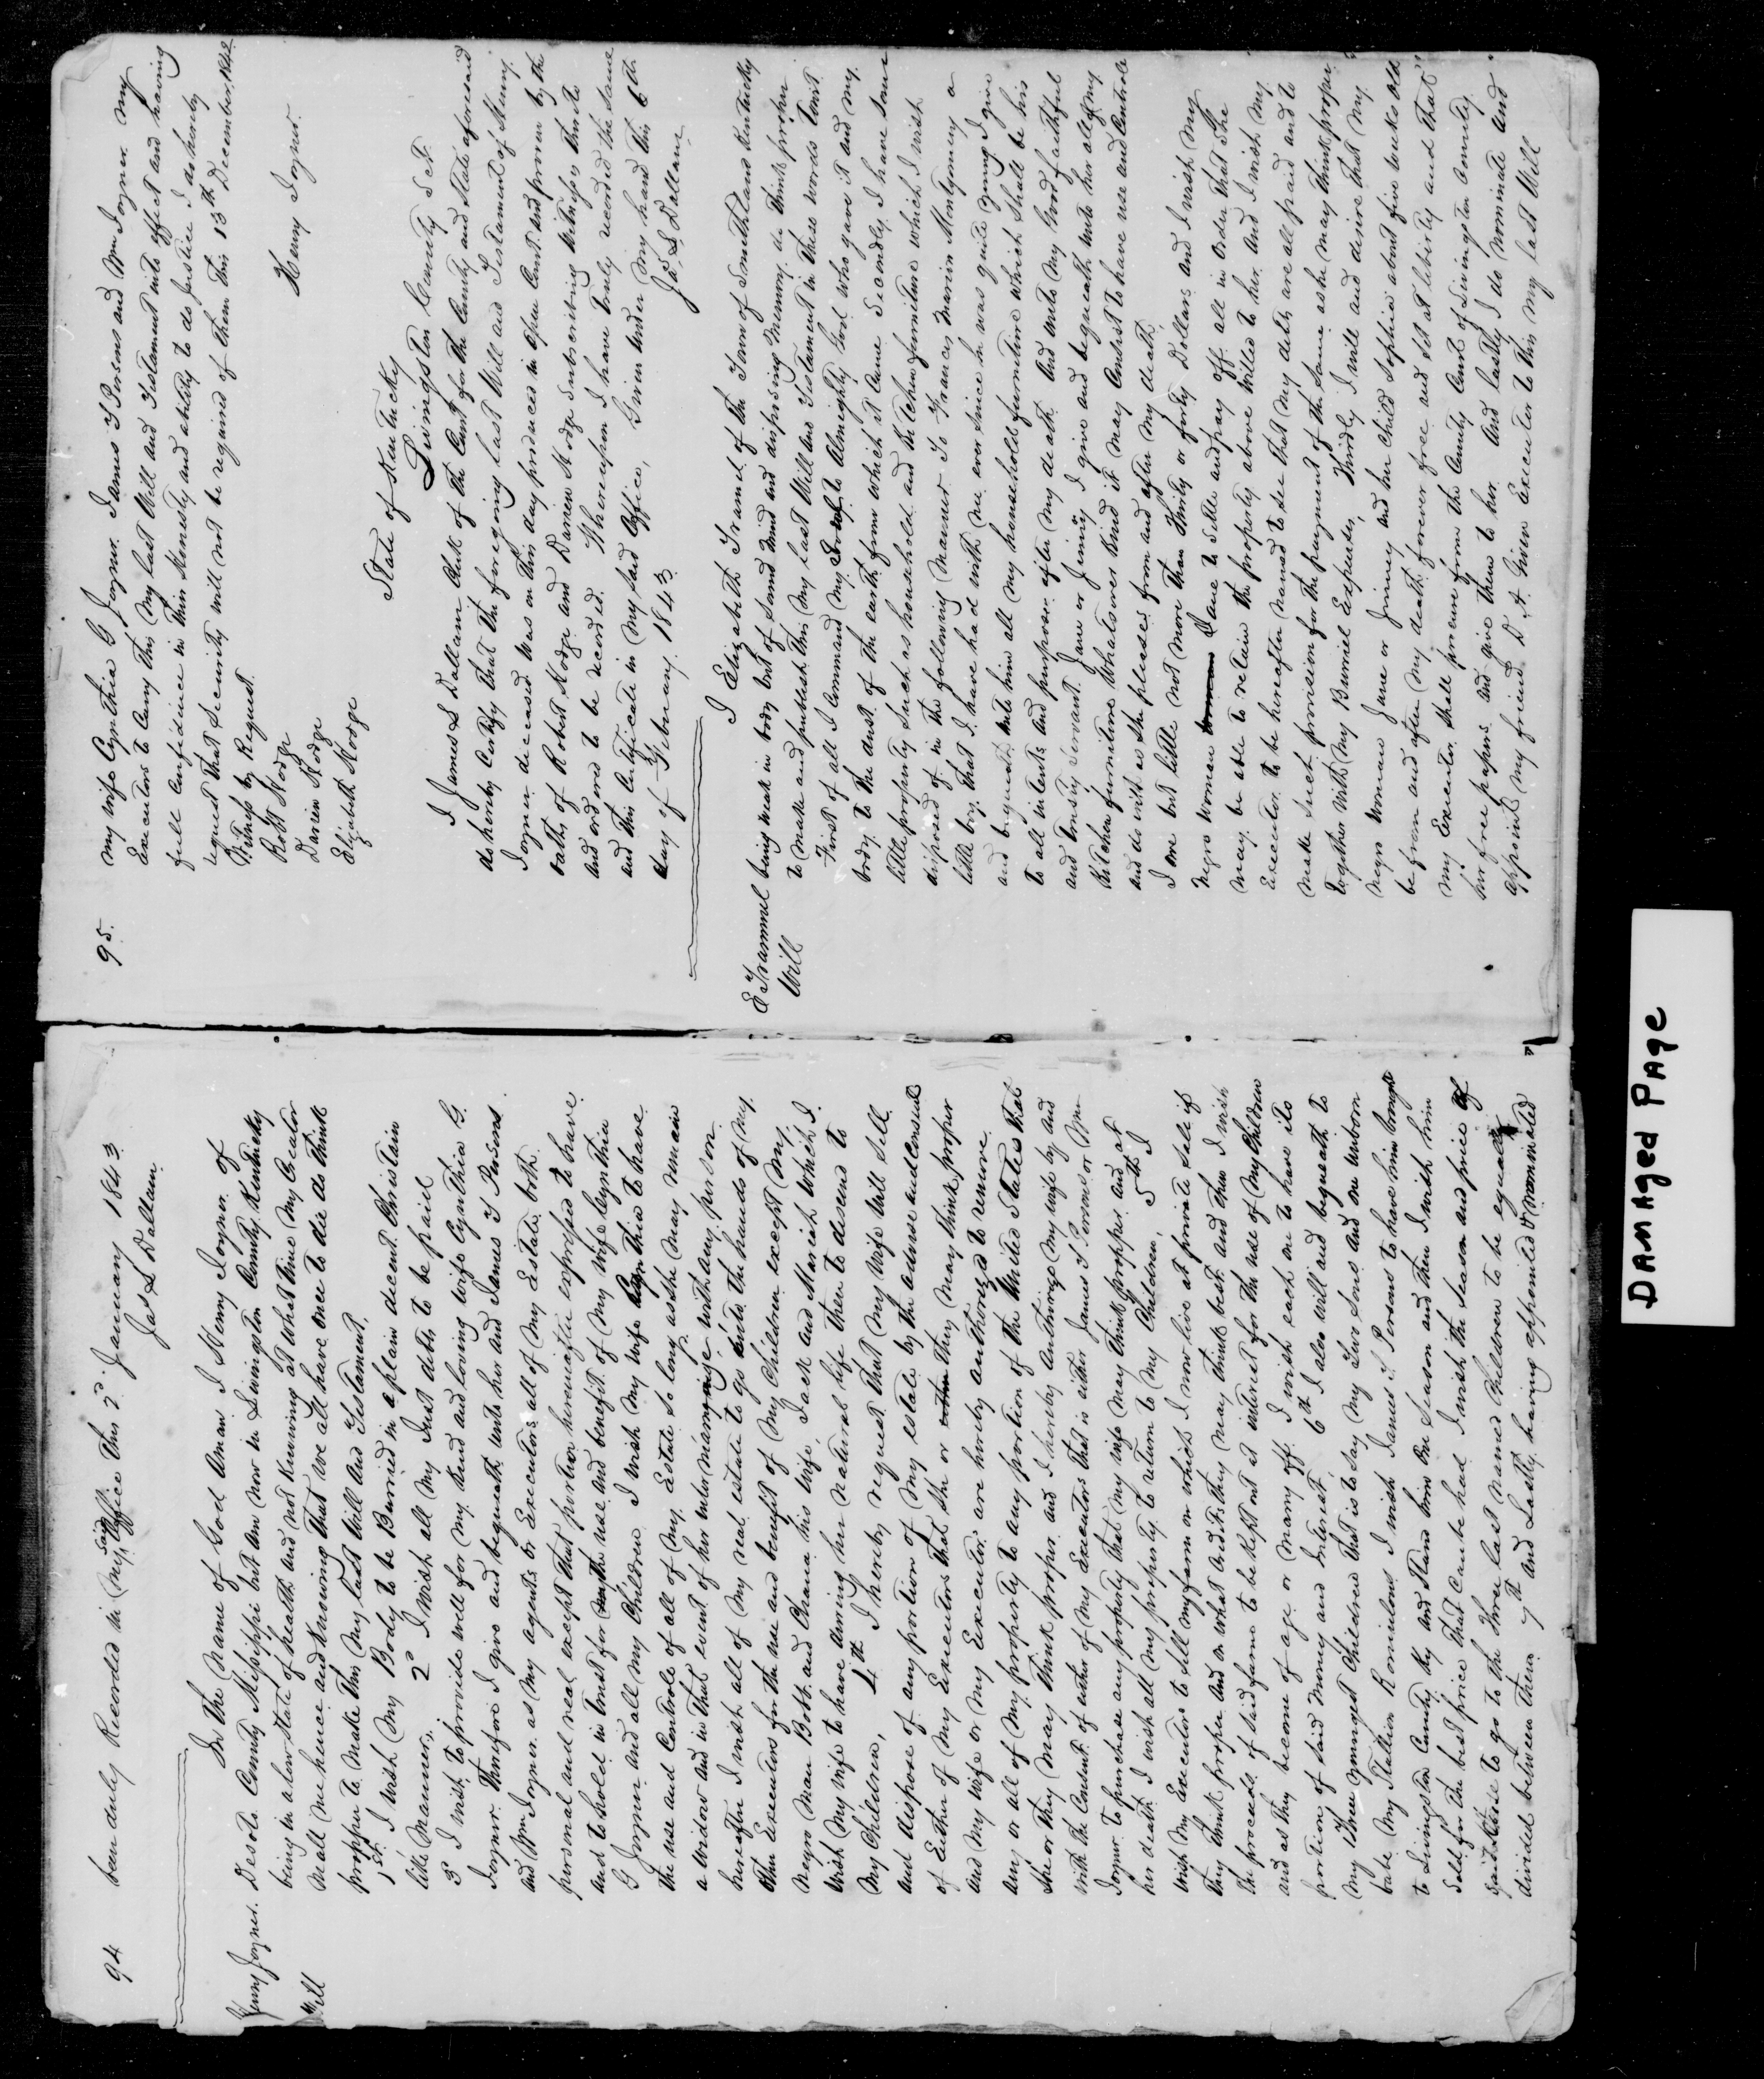 94
been duly Recorded in my said Office this 2d January 1843
Jas L Dallam
Henry Joyner.
Will
In the Name of God Aman I Henry Joyner of
Desoto County Missippi but am now in Livingston County Kentucky
being in a low state of health and not knowing at what time my Creator
shall me hence and knowing that we all have once to die do think
propper to make this my last Will and Testament.
1st I wish my Body to be Burried in a plain decent Christain
like manner, 2d I wish all my Just debts to be paid
3d I wish to provide well for my kind and loving wife Cynthia G.
Joyner. Therefore I give and bequeath unto her and James Y Persons
and Wm Joyner as my agents or Executors all of my Estate both
personal and real except that portion hereinafter expressed to have
and to hold in trust for the use and benefit of my wife Cynthia
G Joyner and all my Children I wish my wife Cynthia to have
the use and Controle of all of my Estate so long as she may remain
a widow and in that event of her intermarriage with any person
hereafter I wish all of my real estate to go into the hands of my
other Executors for the use and benefit of my Children except my
Negro man Bobb and Chana his Wife, Jack and Mariah which I
wish my wife to have during her natural life then to desend to
my Children, 4th I hereby request that my Wife will sell
and dispose of any portion of my estate by the advise and Consent
of Either of my Executors that she or they may think propper
and my Wife or my Executors are hereby authorised to remove
any or all of my property to any portion of the United States that
she or they may think proper and I hereby authorise my wife by and
with the Consent of either of my Executors that is either James Y Persons or Wm
Joyner to purchase any property that my wife may think propper and at
her death I wish all my property to return to my Children, 5th I
wish my Executors to sell my farm on which I now live at private sale if
they think proper and on what Credits they may think best and then I wish
the proceeds of said farm to be kept out at interest for the use of my Children
and as they become of age or marry off I wish each on to have its
portion of said money and Interest, 6th I also will and bequeath to
my three youngest Children that is to say my Two Sons and one unborn
babe my Stallion Romulous I wish James Y Persons to have him brought
to Livingston County Ky and Stand him one season and then I wish him
sold for the best price that Can be had I wish the Season and price of
said to go to the three last named Children to be equally
divided between them 7th And Lastly having appointed & nominated
95.
my wife Cynthia G Joyner James Y Persons and Wm Joyner my
Executors to Carry this my last Will and Testament into effect and having
full Confidence in their Honesty and ability to do Justice I do hereby
request that Security will not be required of them this 13th December 1842
Witness by Request.
Robt Hodge
Darien Hodge
Elizabeth Hodge
Henry Joyner.
State of Kentucky
Livingston County Sct
I James L Dallam Clerk of the Court for the County and State aforesaid
do hereby Certify that the foregoing last Will and Testament of Henry
Joyner deceased was on this day produced in open Court and proven by the
oaths of Robert Hodge and Darien Hodge Subscribing Witnesses thereto
and ordered to be recorded. Whereupon I have truly recorded the same
and this Certificate in my said Office, Given under my hand this 6th
day of February 1843
Jas L Dallam
E Trammel
Will
I Elizabeth Tramel of the Town of Smithland Kentucky
being weak in body but of sound mind and disposing memory, do think proper
to make and publish this my last Will and Testament in these words towit
First of all I Command my Soul to Almighty God who gave it and my
body to the dust of the earth from which it Came Secondly I have some
little property such as household and Kitchen furniture which I wish
disposed of in the following manner To Frances Marion Montgomery a
little boy that I have had with me ever since he was quite young I give
and bequeath unto him all my household furniture which shall be his
to all intents and purposes after my death And unto my good faithful
and trusty servant Jane or Jinny I give and bequeath unto her all of my
Kitchen furniture Whatsover kind it may Consist to have use and Controle
and do with as she pleases from and after my death
I owe but little not more than thirty or forty Dollars and I wish my
negro woman Jane to settle and pay off all in order that she
may be able to retain the property above willed to her And I wish my
Executor to be hereafter named to see that my debts are all paid and to
make such provision for the payment of the same as he may think proper
together with my Burriel Expenses, Thirdly I will and desire that my
negro woman Jane or Jinney and her Child Sophia about five weeks old
be from and after my death forever free and set at liberty and that
my Executor shall procure from the County Court of Livingston County
her free papers and give them to her. And lastly I do nominate and
appoint my friend D. A Given Executor to this my last Will
DAMAged PAge